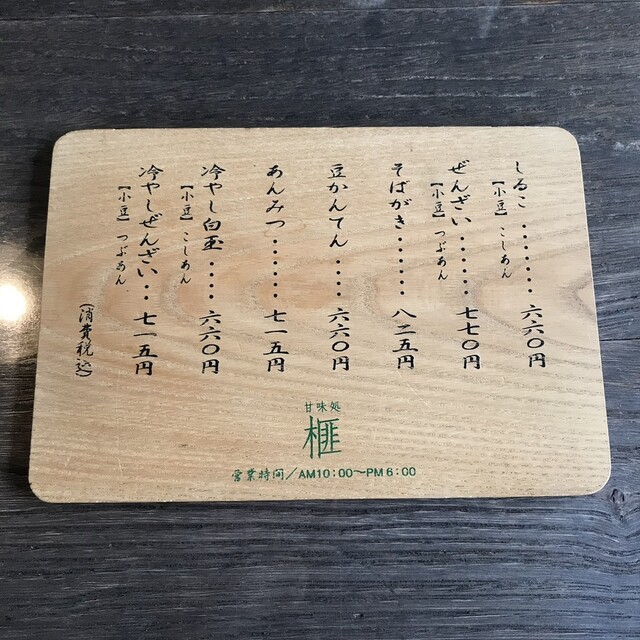 しるこ・・・・・・・六六〇円
【小豆】こしあん
ぜんざい・・・・・・七七〇円
【小豆】つぶあん
そばがき・・・・・・八二五円
豆かんてん・・・・・六六〇円
あんみつ・・・・・・七一五円
冷やし白玉・・・・・六六〇円
【小豆】こしあん
冷やしぜんざい・・・七一五円
【小豆】つぶあん
(消費税込)
甘味処
榧
営業時間/AM10:00〜PM6:00